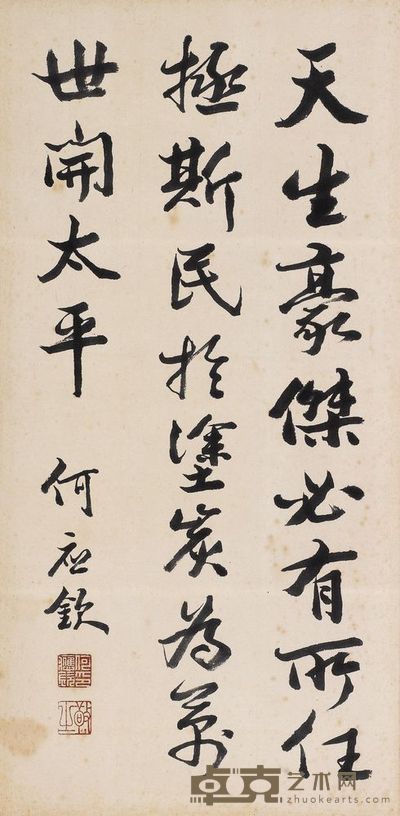 天生豪傑必有所任
拯斯民於塗炭為萬
世開太平
何應欽
卓克艺术网
zhuokearts.com